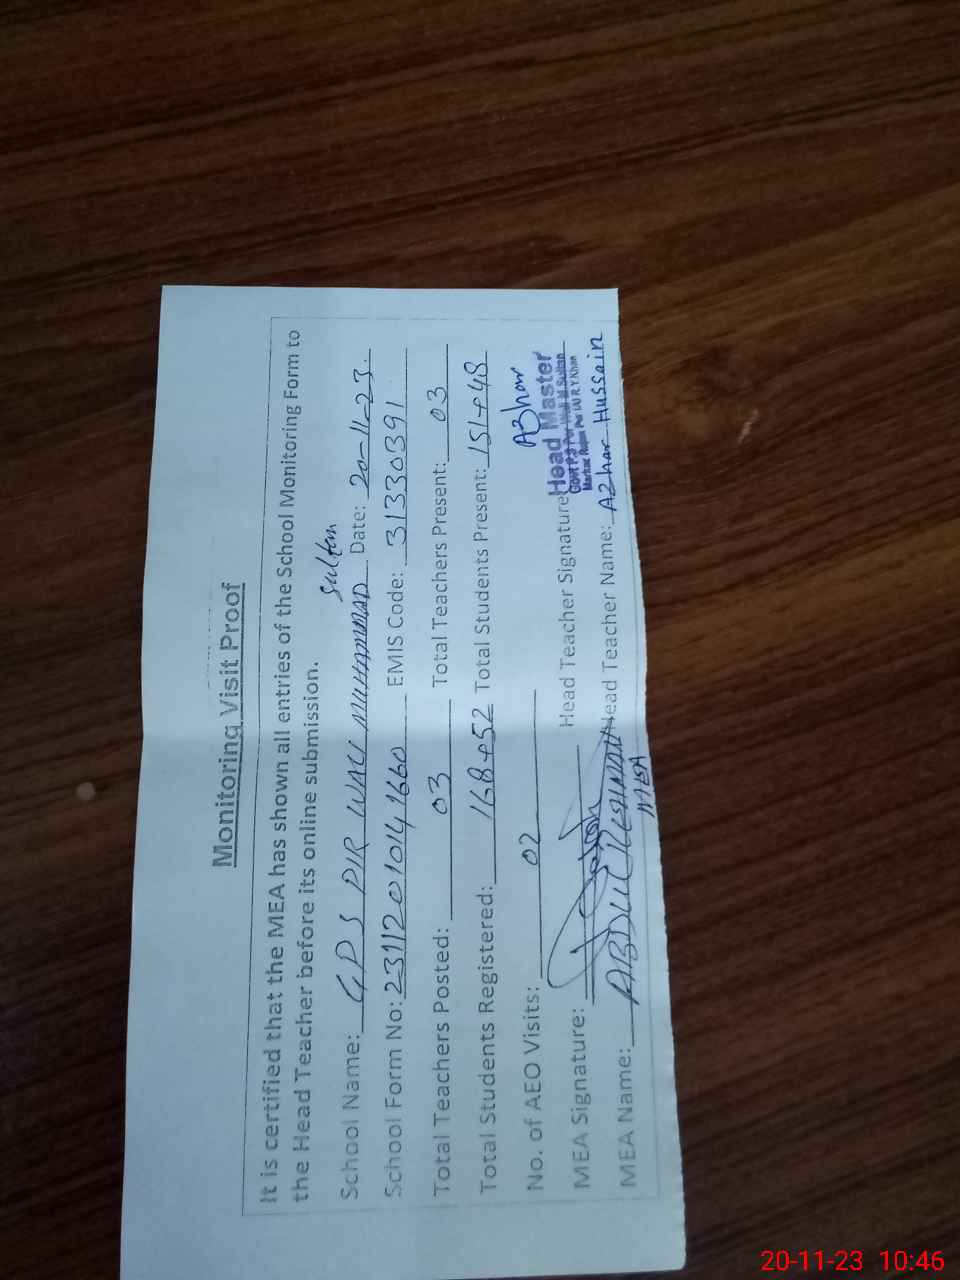 Monitoring Visit Proof
It is certified that the MEA has shown all entries of the School Monitoring Form to
the Head Teacher before its online submission.
School Name: G P S PIR WALI MUHAMMAD Sultan Date: 20-11-23.
School Form No: 23112010141660 EMIS Code: 31330391
Total Teachers Posted: 03 Total Teachers Present: 03
Total Students Registered: 168+52 Total Students Present: 151+48
No. of AEO Visits: 02
MEA Signature: Head Teacher Signature Azhar
Head Master
Govt P/S Pir Wali M Sultan
Markaz R.Y.Khan
MEA Name: ABDUL USMAN Head Teacher Name: Azhar Hussain
MEA
20-11-23 10:46